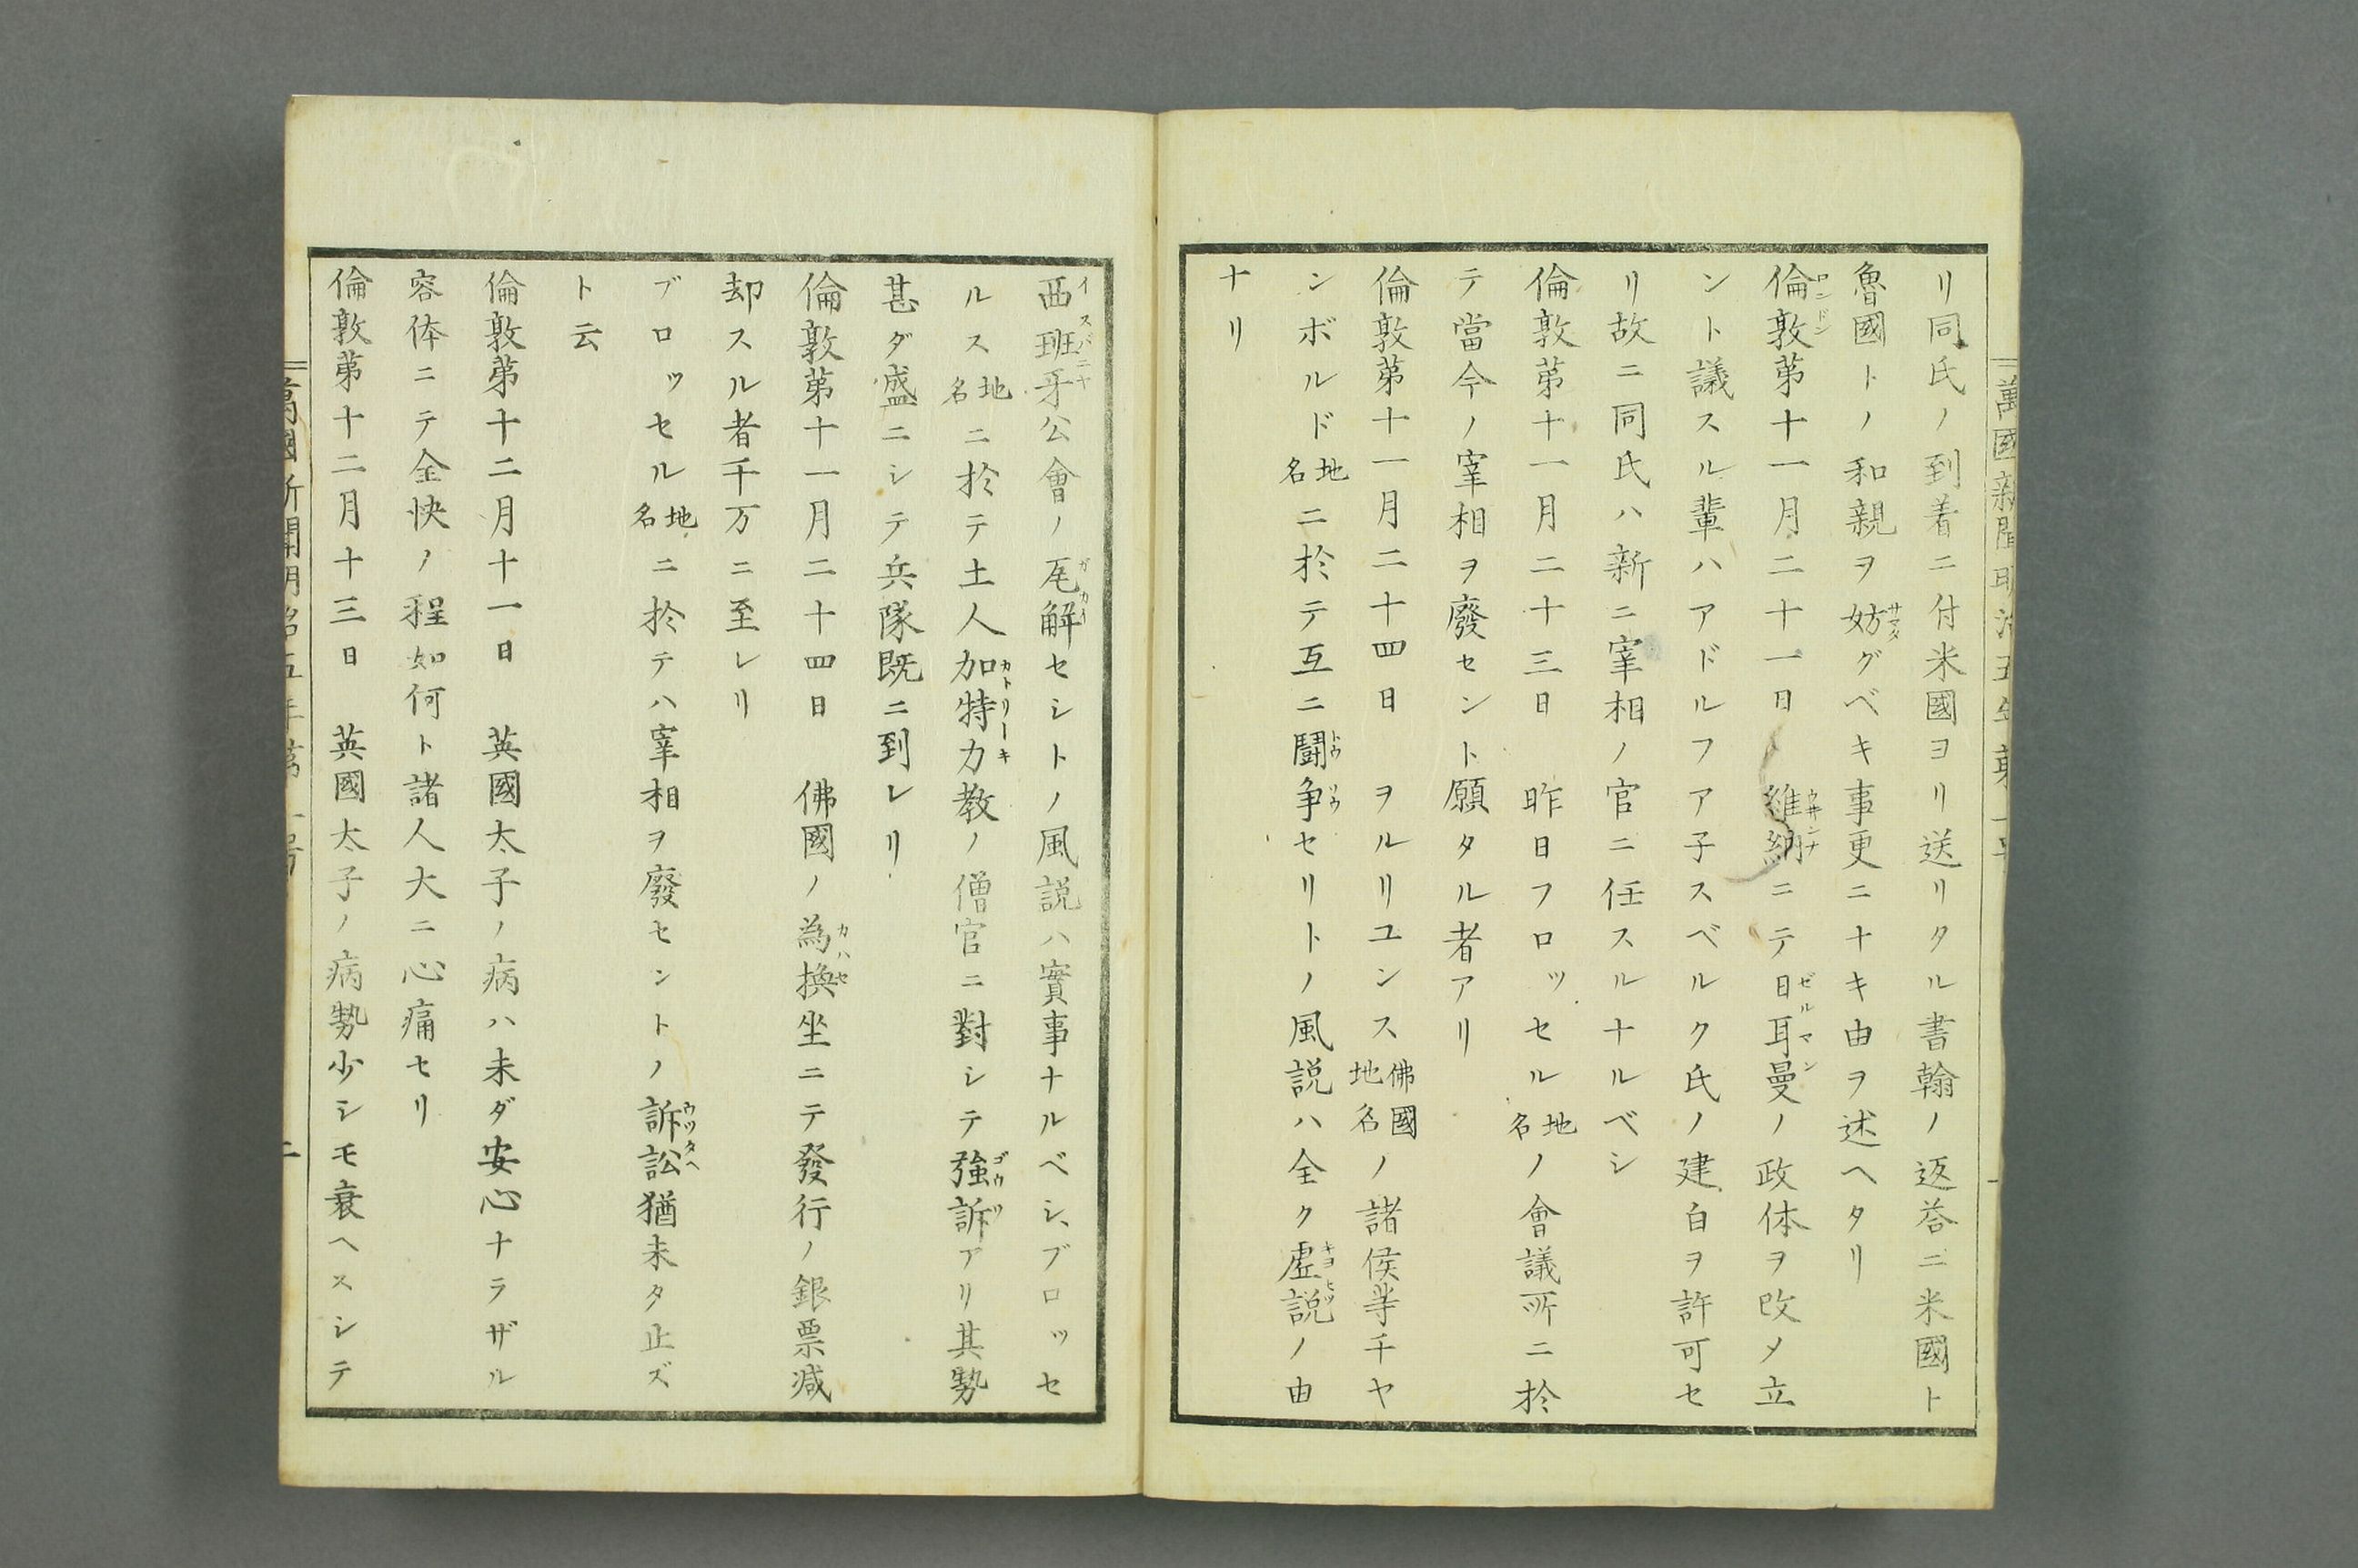 リ同氏ノ到着ニ付米國ヨリ送リタル書翰ノ返答ニ米國ト
魯國トノ和親ヲ妨グベキ事更ニナキ由ヲ述ヘタリ
倫敦第十一月二十一日　維納ニテ日耳曼ノ政体ヲ改メ立
ント議スル輩ハアドルフアア子スベルク氏ノ建白ヲ許可セ
リ故ニ同氏ハ新ニ宰相ノ官ニ任スルナルベシ
倫敦第十一月二十三日　昨日フロッセル地名ノ會議所ニ於
テ當今ノ宰相ヲ廢セント願タル者アリ
倫敦第十一月二十四日　ヲルリユンス佛國地名ノ諸侯等千ヤ
ンボルド地名ニ於テ互ニ鬪争セリトノ風説ハ全ク虚説ノ由
ナリ
西班牙公會ノ瓦解セシトノ風説ハ實事ナルベシ、ブロッセ
ルス地名ニ於テ土人加特力教ノ僧官ニ對シテ強訴アリ其勢
甚ダ盛ニシテ兵隊既ニ到レリ
倫敦第十一月二十四日　佛國ノ為換坐ニテ發行ノ銀票減
却スル者千万ニ至レリ
ブロッセル地名ニ於テハ宰相ヲ廢セントノ訴訟猶未タ止ズ
ト云
倫敦第十二月十一日　英國太子ノ病ハ未ダ安心ナラザル
容体ニテ全快ノ程如何ト諸人大ニ心痛セリ
倫敦第十二月十三日　英國太子ノ病勢少シモ衰ヘスシテ